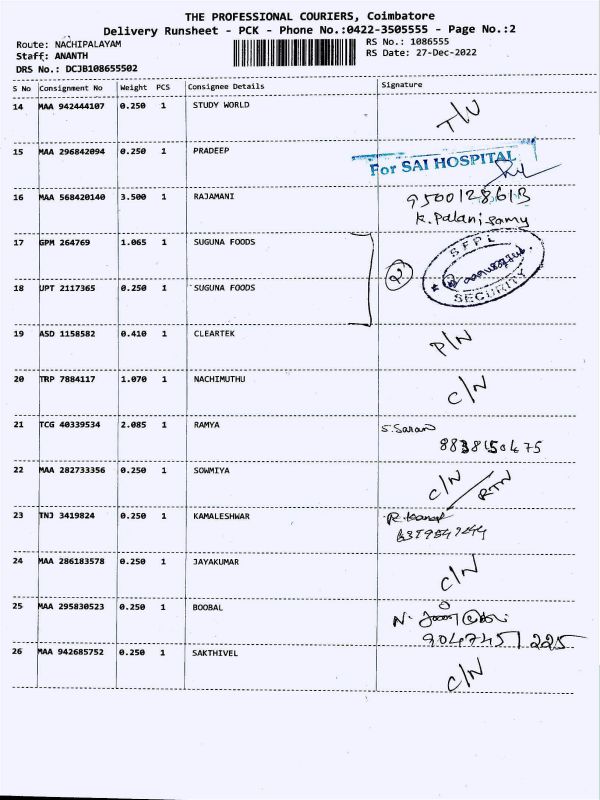 THE PROFESSIONAL COURIERS, Coimbatore
Delivery Runsheet - PCK - Phone No.:0422-3505555 - Page No.:2
Route: NACHIPALAYAM RS No.: 1086555
Staff: ANANTH RS Date: 27-Dec-2022
DRS No.: DCJB108655502
S No Consignment No Weight PCS Consignee Details Signature
14 MAA 942444107 0.250 1 STUDY WORLD T/U
15 MAA 296842094 0.250 1 PRADEEP For SAI HOSPITAL
16 MAA 568420140 3.500 1 RAJAMANI 9500128613
K. Palani Samy
17 GPM 264769 1.065 1 SUGUNA FOODS SFPL
2
18 UPT 2117365 0.250 1 SUGUNA FOODS SECURITY
19 ASD 1158582 0.410 1 CLEARTEK P/N
20 TRP 7884117 1.070 1 NACHIMUTHU C/N
21 TCG 40339534 2.085 1 RAMYA S. Saran
8838150475
22 MAA 282733356 0.250 1 SOWMIYA C/N / RTN
23 TNJ 3419824 0.250 1 KAMALESHWAR
24 MAA 286183578 0.250 1 JAYAKUMAR C/N
25 MAA 295830523 0.250 1 BOOBAL N.
9047451225
26 MAA 942685752 0.250 1 SAKTHIVEL C/N